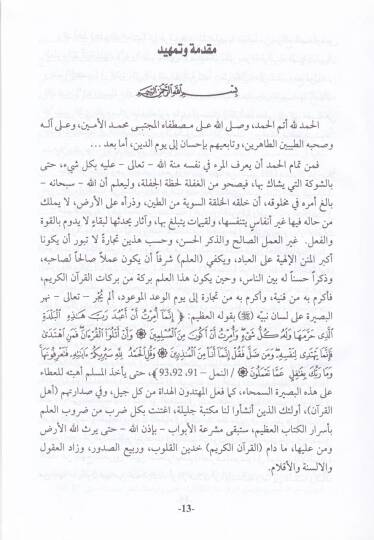 مقدمة وتمهيد
بسم الله الرحمن الرحيم
الحمد لله أتم الحمد، وصل الله على مصطفاه المجتبى محمد الأمين، وعلى آله
وصحبه الطيبين الطاهرين، وتابعيهم بإحسان إلى يوم الدين، أما بعد ...
فمن تمام الحمد أن يعرف المرء في نفسه منة الله - تعالى - عليه بكل شيء، حتى
بالشوكة التي يشاك بها، فيصحو من الغفلة لحظة الجفلة، وليعلم أن الله - سبحانه -
بالغ أمره في مخلوقه، أن خلقه الخلقة السوية من الطين، وذرأه على الأرض، لا يملك
من حاله فيها غير أنفاسٍ يتنفسها، ولقيمات يتبلغ بها، وآثار يحدثها لبقاءٍ لا يدوم بالقوة
والفعل. غير العمل الصالح والذكر الحسن، وحسب هذين تجارةً لا تبور أن يكونا
أكبر المنن الإلهية على العباد، ويكفي (العلم) شرفاً أن يكون عملاً صالحاً لصاحبه،
وذكراً حسناً له بين الناس، وحين يكون هذا العلم بركة من بركات القرآن الكريم،
فأكرم به من قنية، وأكرم به من تجارة إلى يوم الوعد الموعود، ألم يُجْرِ - تعالى - نهر
البصيرة على لسان نبيّه (ﷺ) بقوله العظيم: ﴿ إِنَّمَا أُمِرْتُ أَنْ أَعْبُدَ رَبَّ هَٰذِهِ الْبَلْدَةِ
الَّذِي حَرَّمَهَا وَلَهُ كُلُّ شَيْءٍ وَأُمِرْتُ أَنْ أَكُونَ مِنَ الْمُسْلِمِينَ ۝ وَأَنْ أَتْلُوَ الْقُرْآنَ فَمَنِ اهْتَدَىٰ
فَإِنَّمَا يَهْتَدِي لِنَفْسِهِ وَمَنْ ضَلَّ فَقُلْ إِنَّمَا أَنَا مِنَ الْمُنْذِرِينَ ۝ وَقُلِ الْحَمْدُ لِلَّهِ سَيُرِيكُمْ آيَاتِهِ فَتَعْرِفُونَهَا
وَمَا رَبُّكَ بِغَافِلٍ عَمَّا تَعْمَلُونَ ۝ /النمل - 91، 92، 93﴾، حتى يأخذ المسلم أهبته للعطاء
على هذه البصيرة السمحاء، كما فعل المهتدون الهداة من كل جيل، وفي صدارتهم (أهل
القرآن)، أولئك الذين أنشأوا لنا مكتبة جليلة، اغتنت بكل ضرب من ضروب العلم
بأسرار الكتاب العظيم، ستبقى مشرعة الأبواب - بإذن الله - حتى يرث الله الأرض
ومن عليها، ما دام (القرآن الكريم) خدين القلوب، وربيع الصدور، وزاد العقول
والالسنة والأقلام.
-13-